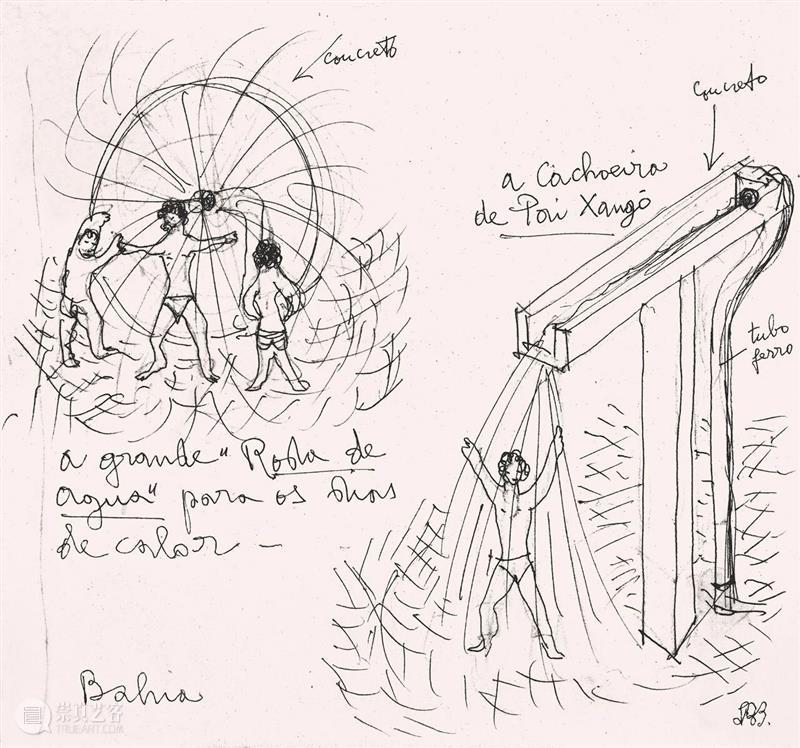 concreto
a grande "Roda de
agua" para os dias
de calor –
Bahia
concreto
a Cachoeira
de Pai Xangô
tubo
ferro
LBB.
崇真艺客
TRUEART.COM